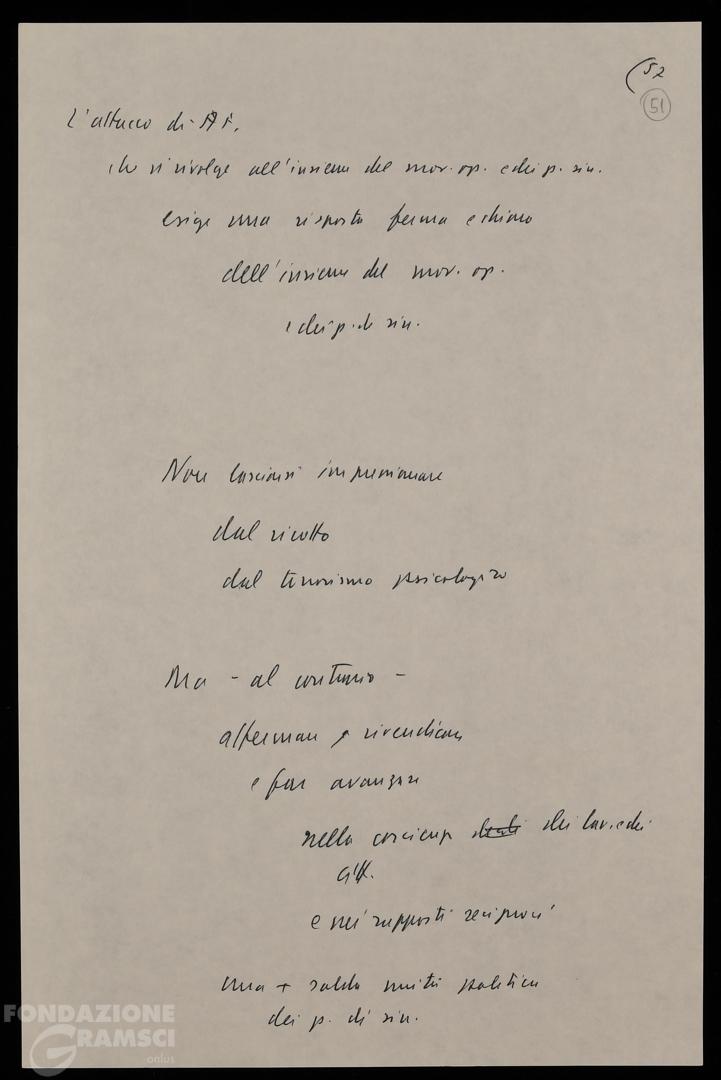 (52
51
L'attacco di A F.
che si rivolge all'insieme del mov. op. e dei p. sin.
esige una risposta ferma e chiara
dell'insieme del mov. op.
e dei p. di sin.
Non lasciarsi impressionare
dal ricatto
dal terrorismo psicologico
Ma - al contrario -
affermare e rivendicare
e far avanzare
nella coscienza dei lav. e dei
citt.
e nei rapporti reciproci
una + salda unità politica
dei p. di sin.
FONDAZIONE
GRAMSCI
onlus